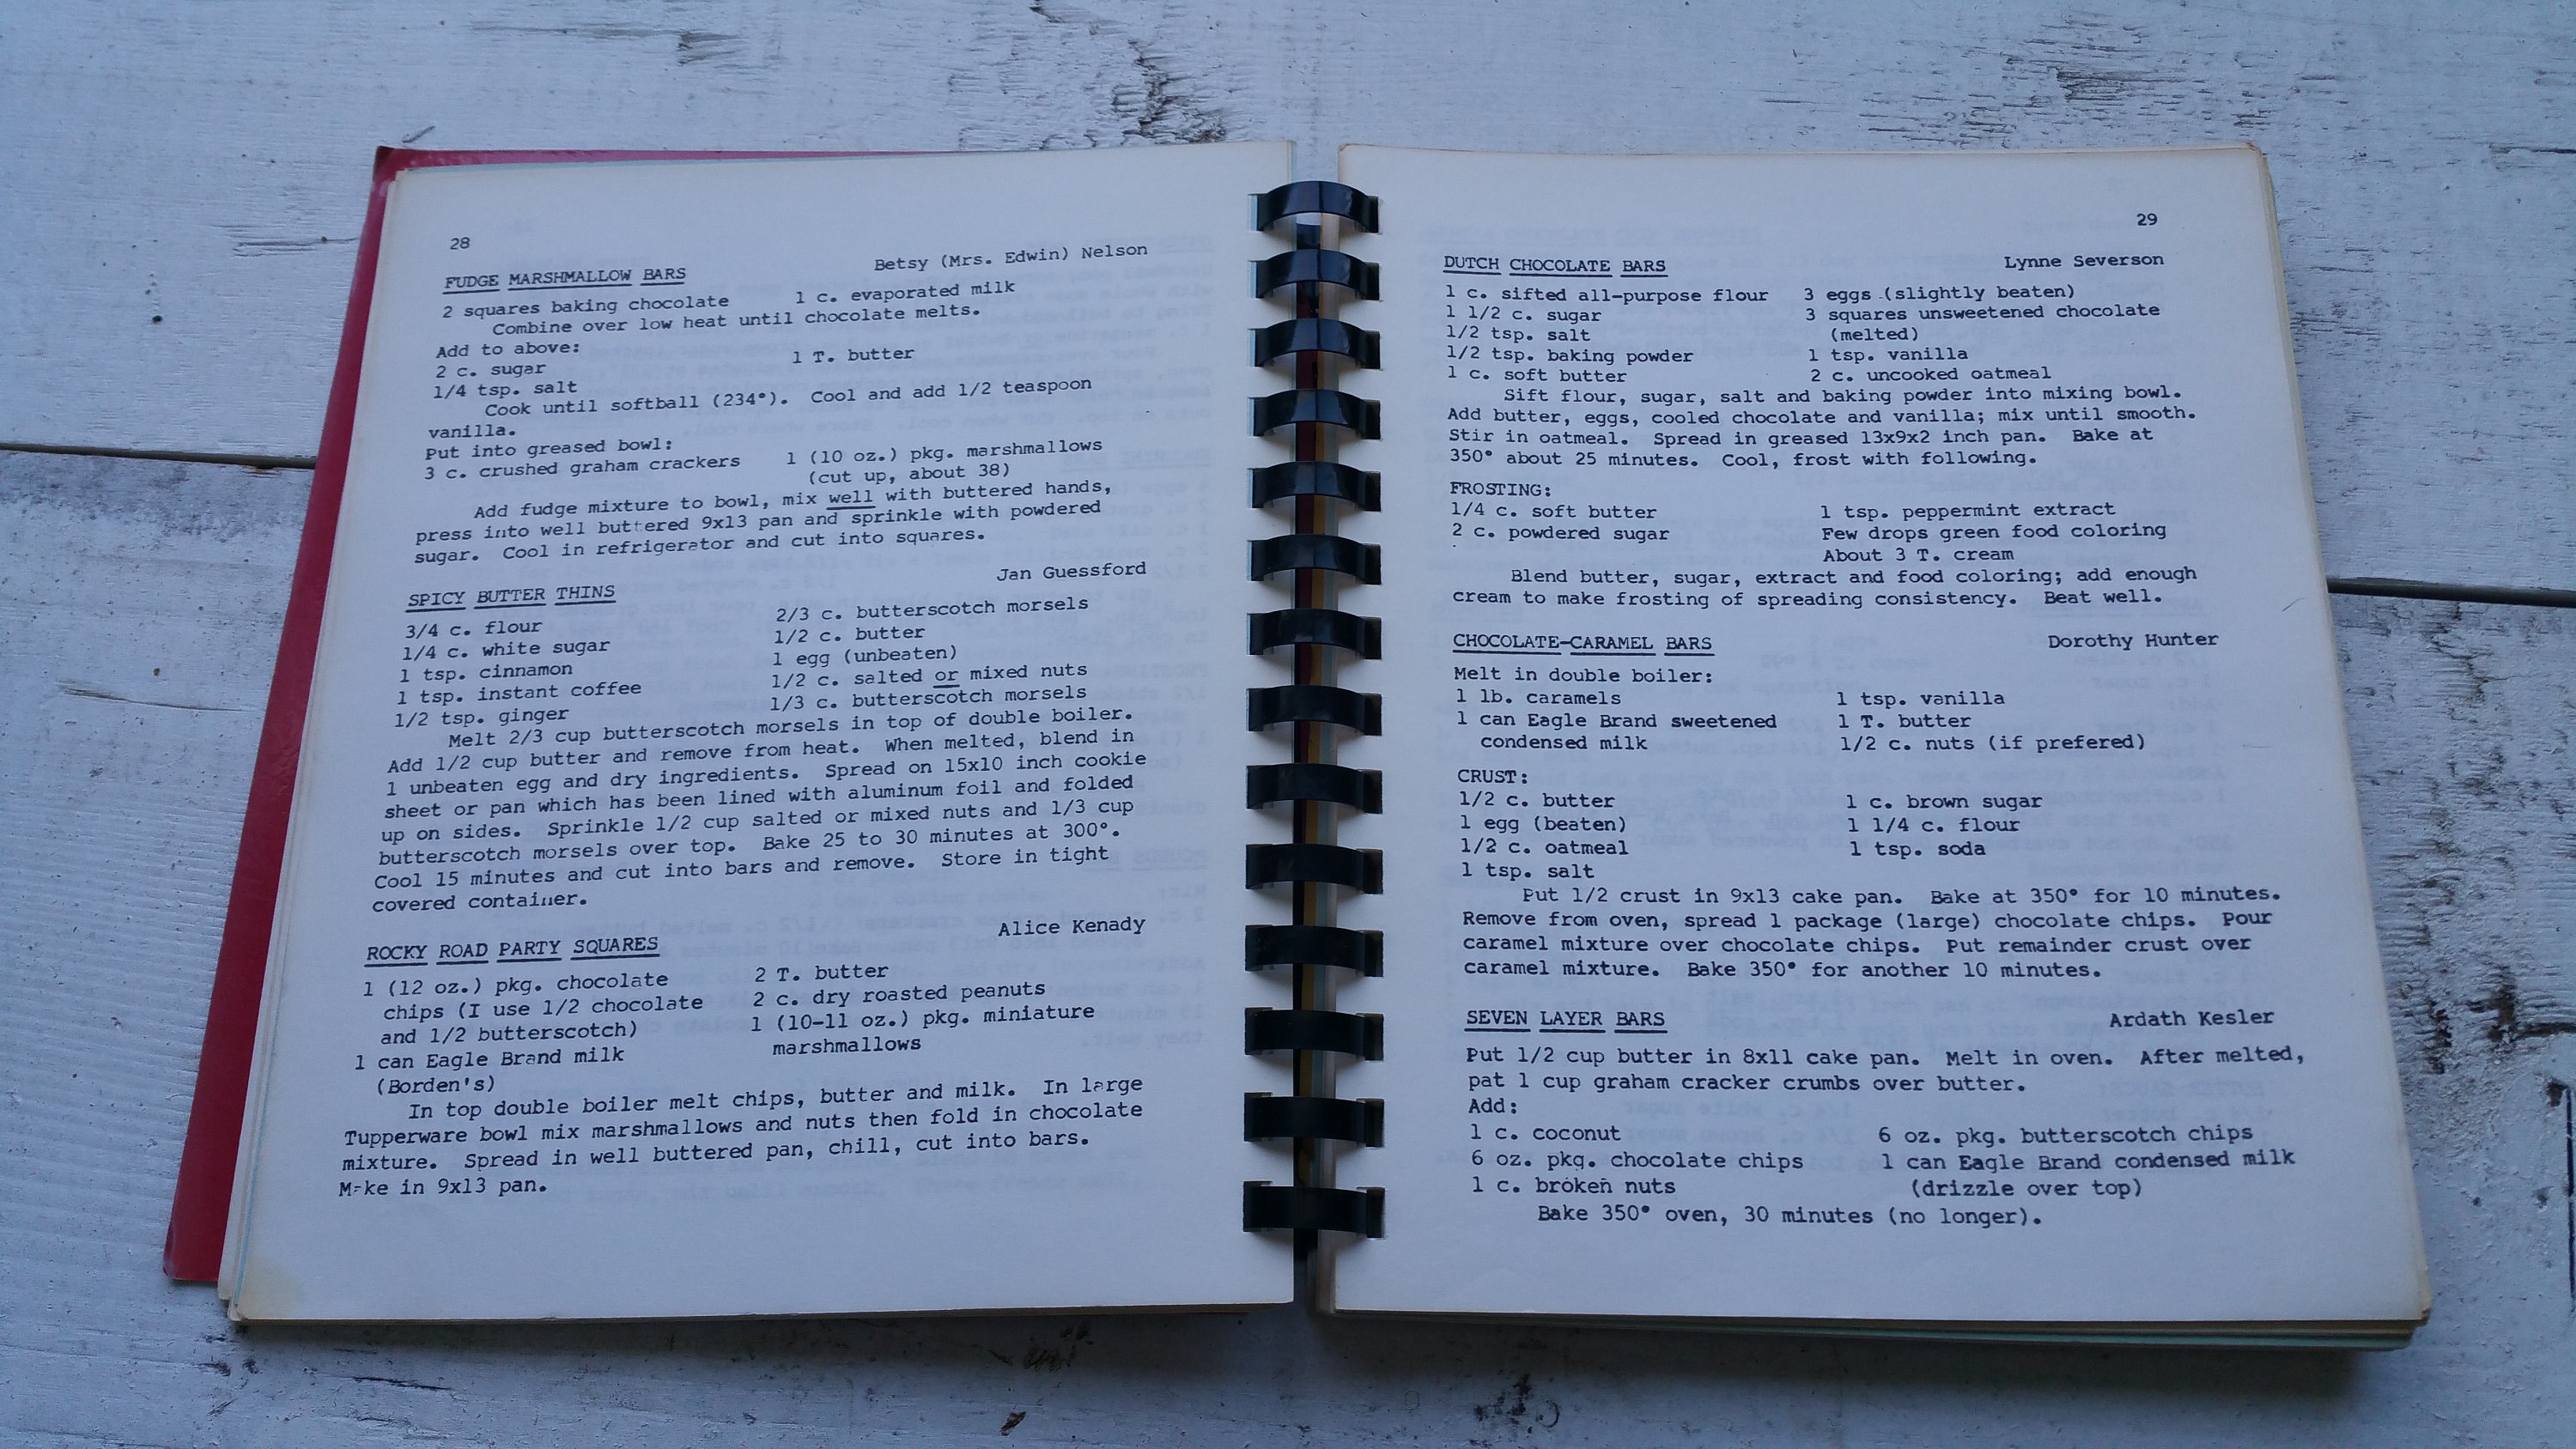 28
Betsy (Mrs. Edwin) Nelson
FUDGE MARSHMALLOW BARS
2 squares baking chocolate 1 c. evaporated milk
Combine over low heat until chocolate melts.
Add to above:
2 c. sugar 1 T. butter
1/4 tsp. salt
Cook until softball (234°). Cool and add 1/2 teaspoon
vanilla.
Put into greased bowl:
3 c. crushed graham crackers 1 (10 oz.) pkg. marshmallows
(cut up, about 38)
Add fudge mixture to bowl, mix well with buttered hands,
press into well buttered 9x13 pan and sprinkle with powdered
sugar. Cool in refrigerator and cut into squares.
Jan Guessford
SPICY BUTTER THINS
3/4 c. flour 2/3 c. butterscotch morsels
1/4 c. white sugar 1/2 c. butter
1 tsp. cinnamon 1 egg (unbeaten)
1 tsp. instant coffee 1/2 c. salted or mixed nuts
1/2 tsp. ginger 1/3 c. butterscotch morsels
Melt 2/3 cup butterscotch morsels in top of double boiler.
Add 1/2 cup butter and remove from heat. When melted, blend in
1 unbeaten egg and dry ingredients. Spread on 15x10 inch cookie
sheet or pan which has been lined with aluminum foil and folded
up on sides. Sprinkle 1/2 cup salted or mixed nuts and 1/3 cup
butterscotch morsels over top. Bake 25 to 30 minutes at 300°.
Cool 15 minutes and cut into bars and remove. Store in tight
covered container.
Alice Kenady
ROCKY ROAD PARTY SQUARES
1 (12 oz.) pkg. chocolate 2 T. butter
chips (I use 1/2 chocolate 2 c. dry roasted peanuts
and 1/2 butterscotch) 1 (10-11 oz.) pkg. miniature
1 can Eagle Brand milk marshmallows
(Borden's)
In top double boiler melt chips, butter and milk. In large
Tupperware bowl mix marshmallows and nuts then fold in chocolate
mixture. Spread in well buttered pan, chill, cut into bars.
Make in 9x13 pan.
29
DUTCH CHOCOLATE BARS Lynne Severson
1 c. sifted all-purpose flour 3 eggs (slightly beaten)
1 1/2 c. sugar 3 squares unsweetened chocolate
1/2 tsp. salt (melted)
1/2 tsp. baking powder 1 tsp. vanilla
1 c. soft butter 2 c. uncooked oatmeal
Sift flour, sugar, salt and baking powder into mixing bowl.
Add butter, eggs, cooled chocolate and vanilla; mix until smooth.
Stir in oatmeal. Spread in greased 13x9x2 inch pan. Bake at
350° about 25 minutes. Cool, frost with following.
FROSTING:
1/4 c. soft butter 1 tsp. peppermint extract
2 c. powdered sugar Few drops green food coloring
About 3 T. cream
Blend butter, sugar, extract and food coloring; add enough
cream to make frosting of spreading consistency. Beat well.
CHOCOLATE-CARAMEL BARS Dorothy Hunter
Melt in double boiler:
1 lb. caramels 1 tsp. vanilla
1 can Eagle Brand sweetened 1 T. butter
condensed milk 1/2 c. nuts (if prefered)
CRUST:
1/2 c. butter 1 c. brown sugar
1 egg (beaten) 1 1/4 c. flour
1/2 c. oatmeal 1 tsp. soda
1 tsp. salt
Put 1/2 crust in 9x13 cake pan. Bake at 350° for 10 minutes.
Remove from oven, spread 1 package (large) chocolate chips. Pour
caramel mixture over chocolate chips. Put remainder crust over
caramel mixture. Bake 350° for another 10 minutes.
SEVEN LAYER BARS Ardath Kesler
Put 1/2 cup butter in 8x11 cake pan. Melt in oven. After melted,
pat 1 cup graham cracker crumbs over butter.
Add:
1 c. coconut 6 oz. pkg. butterscotch chips
6 oz. pkg. chocolate chips 1 can Eagle Brand condensed milk
1 c. broken nuts (drizzle over top)
Bake 350° oven, 30 minutes (no longer).